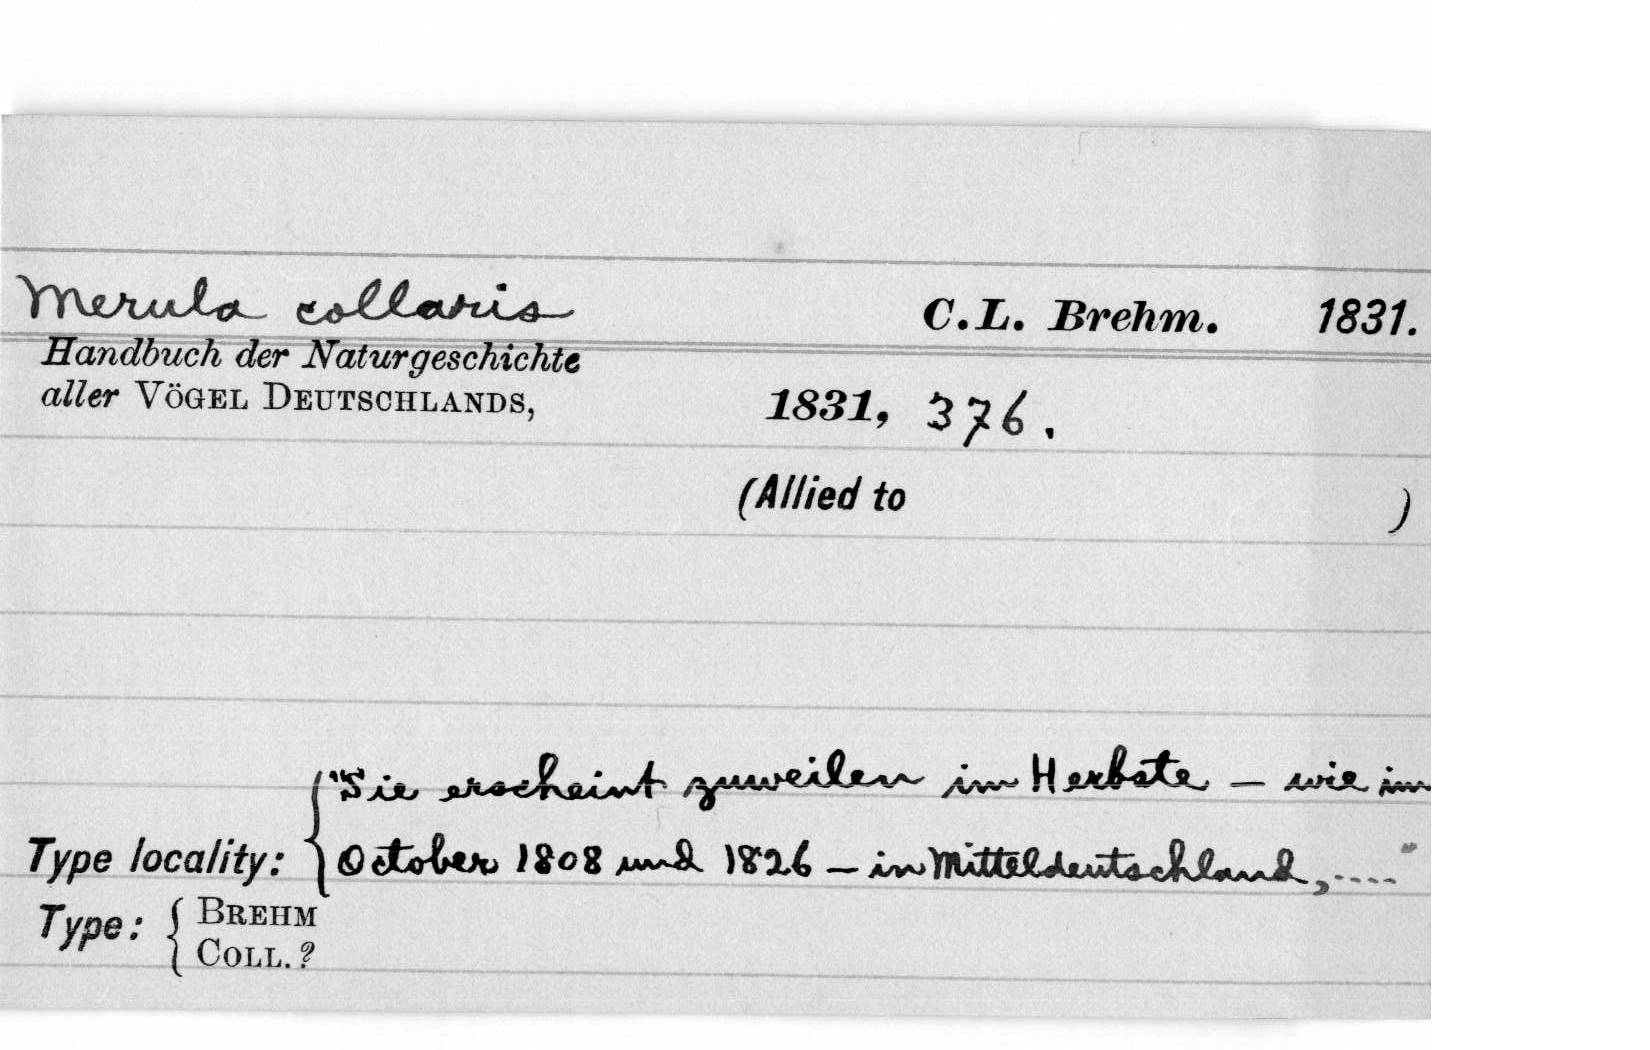 Merula collaris C.L. Brehm. 1831.
Handbuch der Naturgeschichte
aller VÖGEL DEUTSCHLANDS, 1831, 376.
(Allied to )
"Sie erscheint zuweilen im Herbste – wie im
Type locality: October 1808 und 1826 – in Mitteldeutschland, ...."
Type: BREHM
COLL. ?